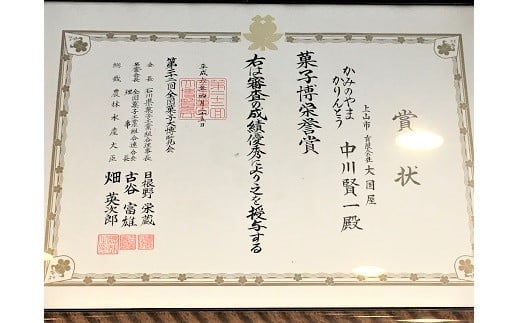 賞状
上山市 有限会社 大国屋
中川賢一殿
かみのやま
かりんとう
菓子博栄誉賞
右は審査の成績優秀により之を授与する
平成六年四月二十五日
第二十二回全国菓子大博覧会
会長 石川県菓子工業組合理事長 日根野栄蔵
名誉会長 全国菓子工業組合連合会理事長 古谷富雄
総裁 農林水産大臣 畑英次郎